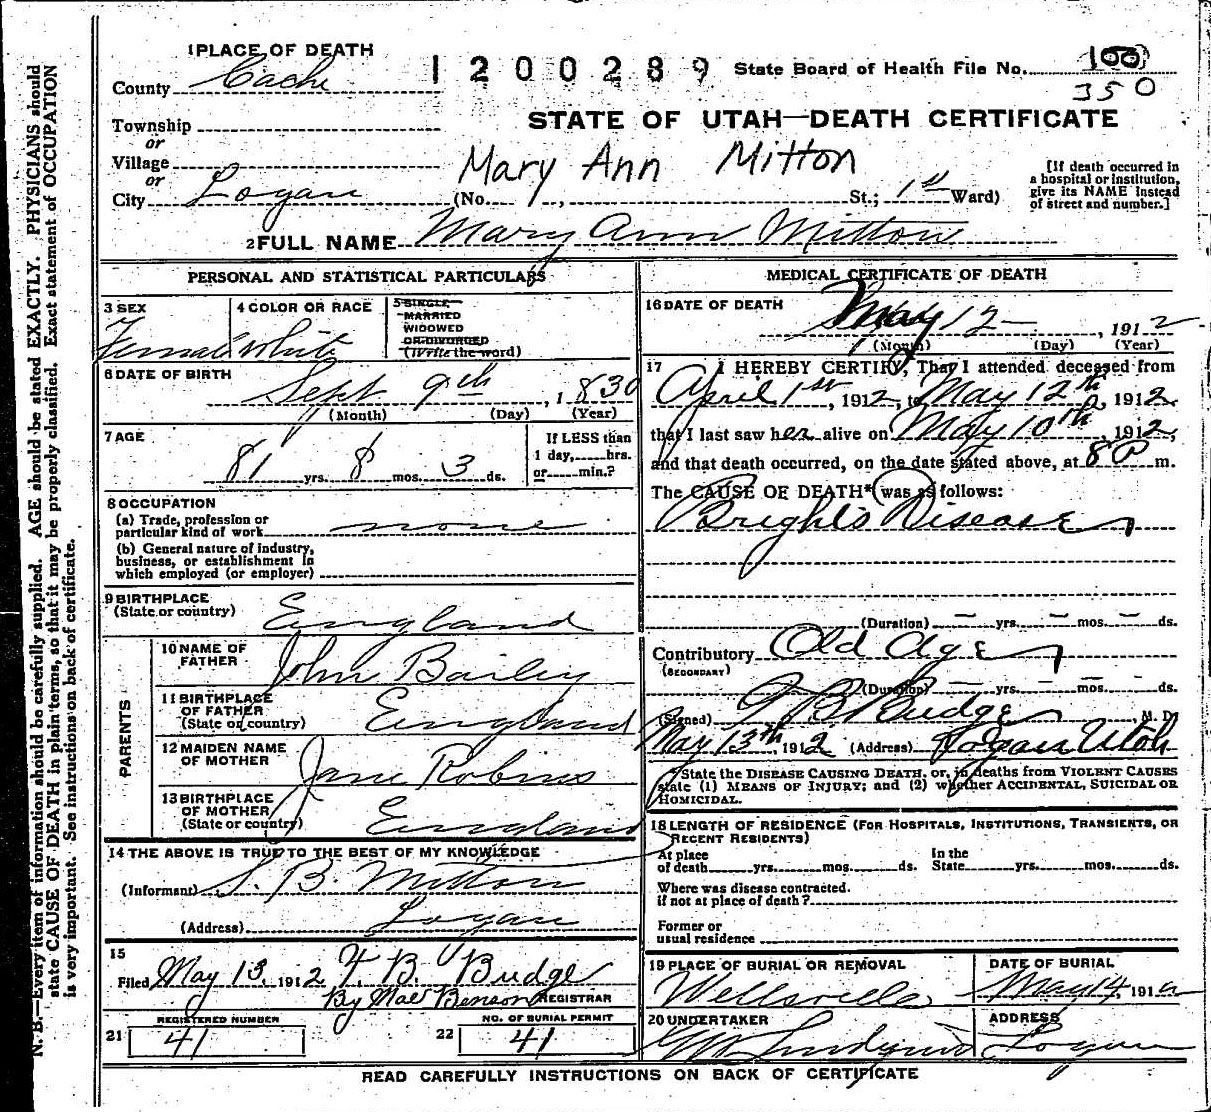 1 PLACE OF DEATH
County Cache
1200289
State Board of Health File No. 100
350
STATE OF UTAH—DEATH CERTIFICATE
Township
or
Village
or
City Logan
Mary Ann Mitton
(No. 1, St.; 1st Ward)
[If death occurred in
a hospital or institution,
give its NAME instead
of street and number.]
2 FULL NAME Mary Ann Mitton
PERSONAL AND STATISTICAL PARTICULARS
3 SEX
Female
4 COLOR OR RACE
White
5 SINGLE
MARRIED
WIDOWED
OR DIVORCED
(Write the word)
6 DATE OF BIRTH
Sept 9th, 1830
(Month) (Day) (Year)
7 AGE
81 yrs. 8 mos. 3 ds.
If LESS than
1 day,......hrs.
or......min.?
8 OCCUPATION
(a) Trade, profession or
particular kind of work none
(b) General nature of industry,
business, or establishment in
which employed (or employer)
9 BIRTHPLACE
(State or country) England
PARENTS
10 NAME OF
FATHER John Bailey
11 BIRTHPLACE
OF FATHER
(State or country) England
12 MAIDEN NAME
OF MOTHER Jane Robins
13 BIRTHPLACE
OF MOTHER
(State or country) England
14 THE ABOVE IS TRUE TO THE BEST OF MY KNOWLEDGE
(Informant) S. B. Mitton
(Address) Logan
15
Filed May 13, 1912 F. B. Budge
By Mae Benson REGISTRAR
REGISTERED NUMBER
21 41
NO. OF BURIAL PERMIT
22 41
MEDICAL CERTIFICATE OF DEATH
16 DATE OF DEATH
May 12, 1912
(Month) (Day) (Year)
17 I HEREBY CERTIFY, That I attended deceased from
April 1st, 1912, to May 12th, 1912,
that I last saw her alive on May 10th, 1912,
and that death occurred, on the date stated above, at 8 P m.
The CAUSE OF DEATH* was as follows:
Bright's Disease
(Duration) — yrs. — mos. — ds.
Contributory Old Age
(SECONDARY)
(Duration) — yrs. — mos. — ds.
(Signed) Budge, M. D.
May 13th, 1912 (Address) Logan Utah
*State the DISEASE CAUSING DEATH, or, in deaths from VIOLENT CAUSES
state (1) MEANS OF INJURY; and (2) whether ACCIDENTAL, SUICIDAL OR
HOMICIDAL.
18 LENGTH OF RESIDENCE (FOR HOSPITALS, INSTITUTIONS, TRANSIENTS, OR
RECENT RESIDENTS)
At place
of death......yrs......mos......ds.
In the
State......yrs......mos......ds.
Where was disease contracted.
if not at place of death?
Former or
usual residence
19 PLACE OF BURIAL OR REMOVAL
Wellsville
DATE OF BURIAL
May 14, 1912
20 UNDERTAKER
ADDRESS
Logan
READ CAREFULLY INSTRUCTIONS ON BACK OF CERTIFICATE
N. B.—Every item of information should be carefully supplied. AGE should be stated EXACTLY. PHYSICIANS should
state CAUSE OF DEATH in plain terms, so that it may be properly classified. Exact statement of OCCUPATION
is very important. See instructions on back of certificate.